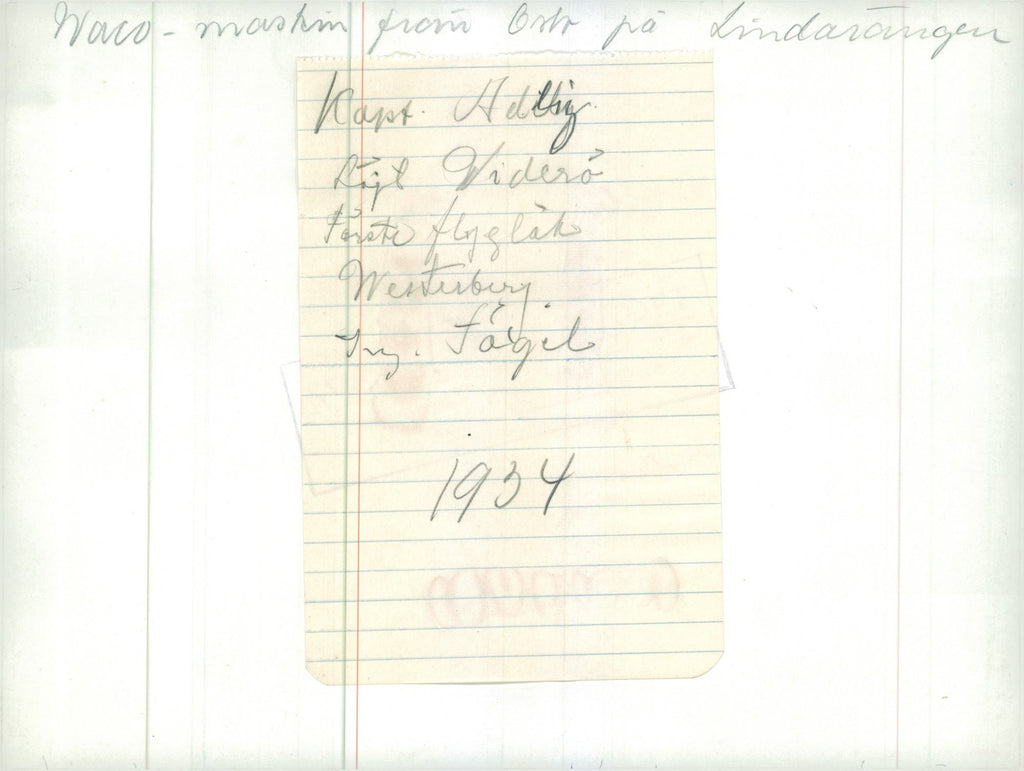 Waco-maskin från Oslo på Lindarängen
Kapt.
Löjt Viderö
Förste flygläk
Westerberg.
Ing. Fågel
1934